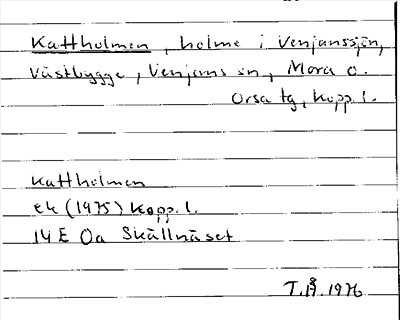 Kattholmen, holme i Venjanssjön,
Västbygge, Venjans sn, Mora o.
Orsa tg, Kopp. l.
Kattholmen
ek (1975) Kopp. l.
14 E 0a Skällnäset
T.Å. 1976